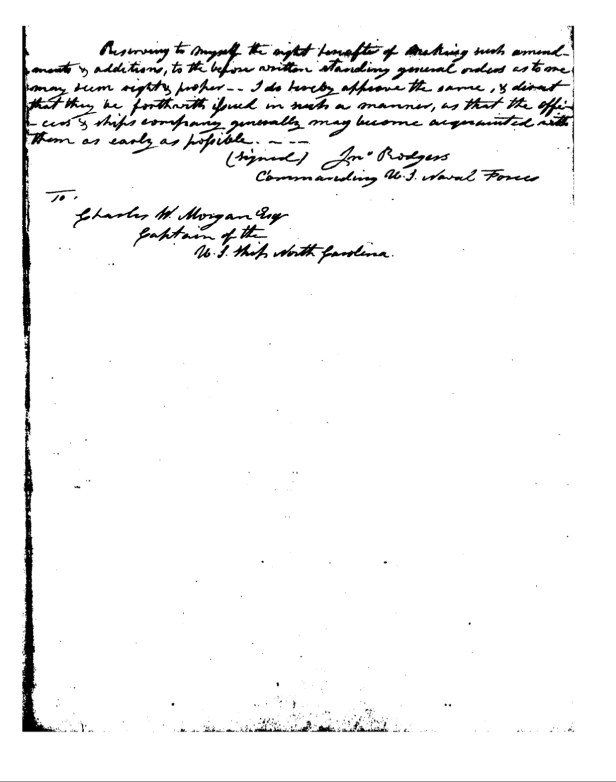 Reserving to myself the right hereafter of making such amend-
ments & additions, to the before written standing general orders as to me
may seem right & proper -- I do hereby approve the same, & direct
that they be forthwith issued in such a manner, as that the offi-
-cers & ships company generally may become acquainted with
them as early as possible. - - -
(signed) Jno Rodgers
Commanding U.S. Naval Forces
To.
Charles W. Morgan Esq
Captain of the
U.S. Ship North Carolina.